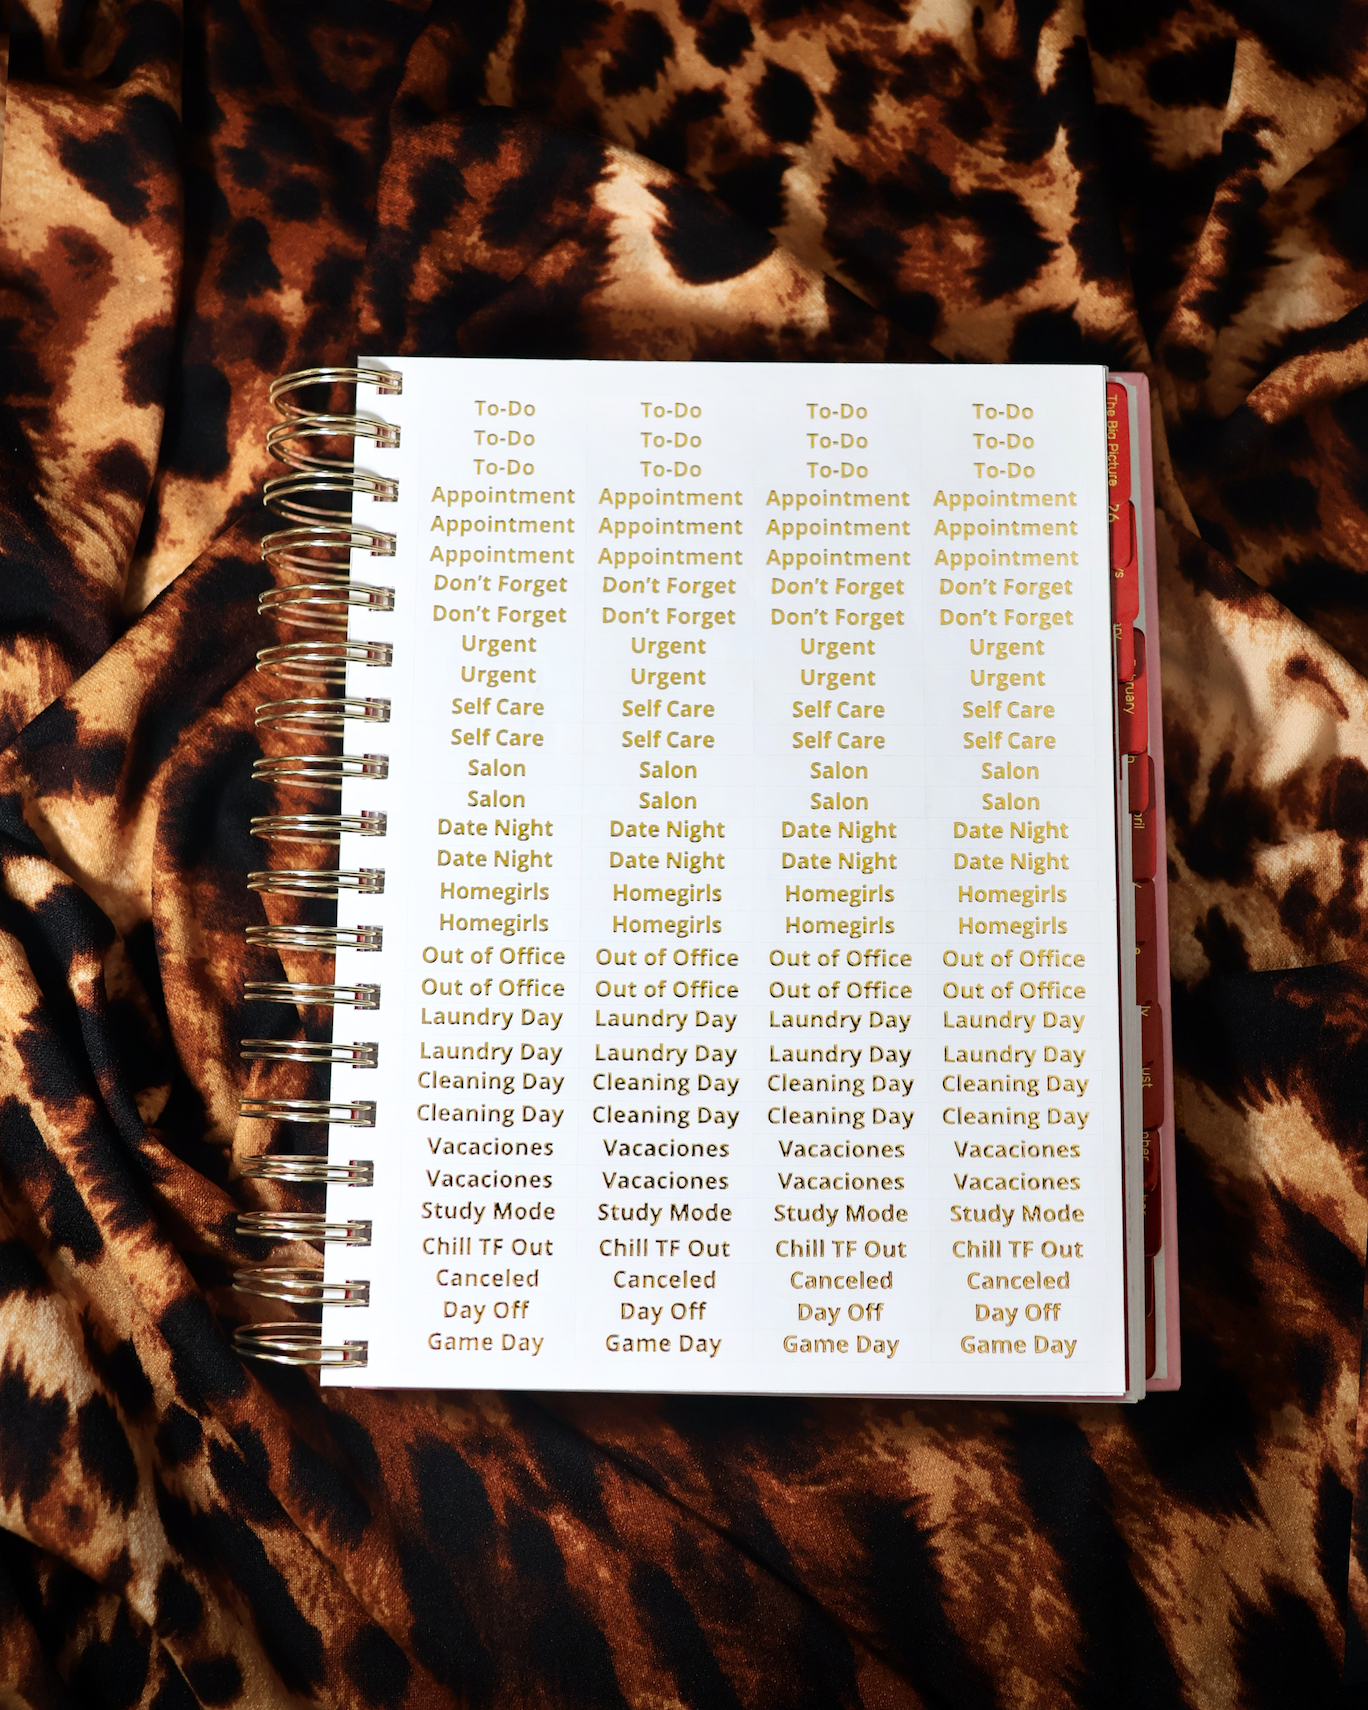 To-Do To-Do To-Do To-Do
To-Do To-Do To-Do To-Do
To-Do To-Do To-Do To-Do
Appointment Appointment Appointment Appointment
Appointment Appointment Appointment Appointment
Appointment Appointment Appointment Appointment
Don't Forget Don't Forget Don't Forget Don't Forget
Don't Forget Don't Forget Don't Forget Don't Forget
Urgent Urgent Urgent Urgent
Urgent Urgent Urgent Urgent
Self Care Self Care Self Care Self Care
Self Care Self Care Self Care Self Care
Salon Salon Salon Salon
Salon Salon Salon Salon
Date Night Date Night Date Night Date Night
Date Night Date Night Date Night Date Night
Homegirls Homegirls Homegirls Homegirls
Homegirls Homegirls Homegirls Homegirls
Out of Office Out of Office Out of Office Out of Office
Out of Office Out of Office Out of Office Out of Office
Laundry Day Laundry Day Laundry Day Laundry Day
Laundry Day Laundry Day Laundry Day Laundry Day
Cleaning Day Cleaning Day Cleaning Day Cleaning Day
Cleaning Day Cleaning Day Cleaning Day Cleaning Day
Vacaciones Vacaciones Vacaciones Vacaciones
Vacaciones Vacaciones Vacaciones Vacaciones
Study Mode Study Mode Study Mode Study Mode
Chill TF Out Chill TF Out Chill TF Out Chill TF Out
Canceled Canceled Canceled Canceled
Day Off Day Off Day Off Day Off
Game Day Game Day Game Day Game Day
The Big Picture
26